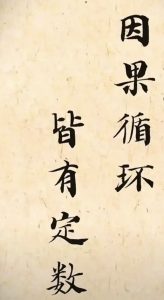 因果循环
皆有定数